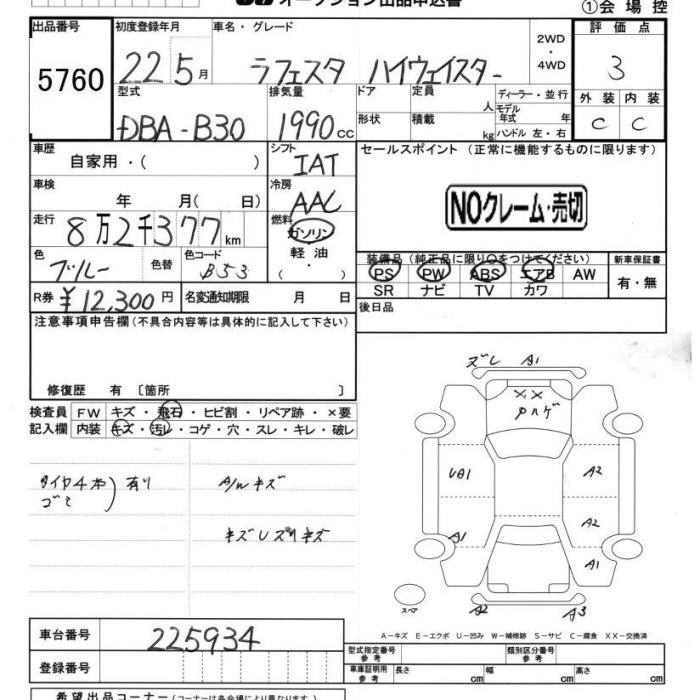 オークション出品申込書
①会場控
出品番号 5760
初度登録年月 22 5月
車名・グレード ラフェスタ ハイウェイスター
2WD・4WD
評価点 3
外装 C 内装 C
型式 DBA-B30
排気量 1990cc
ドア 形状
定員 人 積載 kg
ディーラー・並行
モデル年式 年
ハンドル 左・右
車歴 自家用・( )
シフト IAT
車検 年 月( 日)
冷房 AAC
走行 8万2千377km
燃料 ガソリン 軽油・( )
色 ブルー 色替
色コード B53
R券 ¥12,300円
名変通知期限 月 日
セールスポイント(正常に機能するものに限ります)
NOクレーム・売切
装備品(純正品に限り○をつけてください)
PS PW ABS エアB AW
SR ナビ TV カワ
新車保証書 有・無
後日品
注意事項申告欄(不具合内容等は具体的に記入して下さい)
修復歴 有〔箇所 〕
検査員 FW キズ・飛石・ヒビ割・リペア跡・×要
記入欄 内装 キズ・汚レ・コゲ・穴・スレ・キレ・破レ
タイヤ4本 有り
ゴミ
A/Wキズ
ズレ A1
××
UA1 A2
A1 A2
A1
スペア A2 A3
A-キズ E-エクボ U-凹み W-補修跡 S-サビ C-腐食 XX-交換済
車台番号 225934
型式指定番号 参考
類別区分番号 参考
登録番号
車庫証明用 参考 長さ cm 幅 cm 高さ cm
希望出品コーナー